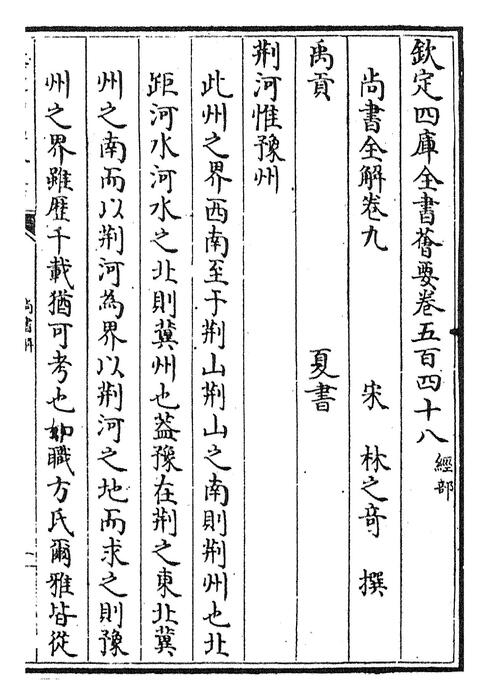 欽定四庫全書薈要卷五百四十八 經部
尚書全解卷九 宋 林之奇 撰
禹貢 夏書
荆河惟豫州
此州之界西南至于荆山荆山之南則荆州也北
距河水河水之北則冀州也葢豫在荆之東北冀
州之南而以荆河為界以荆河之地而求之則豫
州之界雖歴千載猶可考也如職方氏爾雅皆從
尚書解